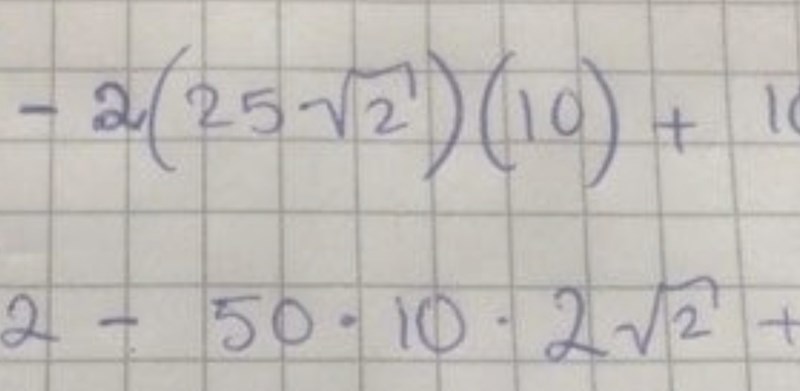 - 2(25√2)(10) + 10
2 - 50 · 10 · 2√2 +